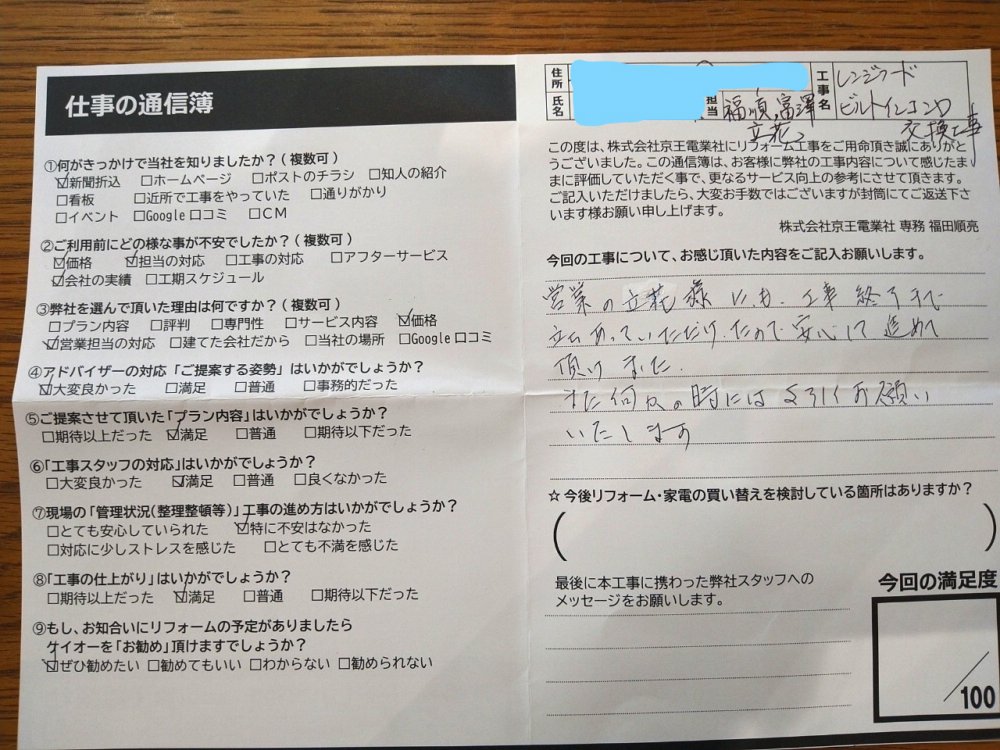 仕事の通信簿
①何がきっかけで当社を知りましたか？(複数可)
☑新聞折込 □ホームページ □ポストのチラシ □知人の紹介
□看板 □近所で工事をやっていた □通りがかり
□イベント □Google口コミ □CM
②ご利用前にどの様な事が不安でしたか？(複数可)
☑価格 ☑担当の対応 □工事の対応 □アフターサービス
☑会社の実績 □工期スケジュール
③弊社を選んで頂いた理由は何ですか？(複数可)
□プラン内容 □評判 □専門性 □サービス内容 ☑価格
☑営業担当の対応 □建てた会社だから □当社の場所 □Google口コミ
④アドバイザーの対応「ご提案する姿勢」はいかがでしょうか？
☑大変良かった □満足 □普通 □事務的だった
⑤ご提案させて頂いた「プラン内容」はいかがでしょうか？
□期待以上だった ☑満足 □普通 □期待以下だった
⑥「工事スタッフの対応」はいかがでしょうか？
□大変良かった ☑満足 □普通 □良くなかった
⑦現場の「管理状況(整理整頓等)」工事の進め方はいかがでしょうか？
□とても安心していられた ☑特に不安はなかった
□対応に少しストレスを感じた □とても不満を感じた
⑧「工事の仕上がり」はいかがでしょうか？
□期待以上だった ☑満足 □普通 □期待以下だった
⑨もし、お知合いにリフォームの予定がありましたら
ケイオーを「お勧め」頂けますでしょうか？
☑ぜひ勧めたい □勧めてもいい □わからない □勧められない
住所
氏名
担当 福順、富澤
立花
工事名 レンジフード
ビルトインコンロ
交換工事
この度は、株式会社京王電業社にリフォーム工事をご用命頂き誠にありがと
うございました。この通信簿は、お客様に弊社の工事内容について感じたま
まに評価していただく事で、更なるサービス向上の参考にさせて頂きます。
ご記入いただけましたら、大変お手数ではございますが封筒にてご返送下さ
います様お願い申し上げます。
株式会社京王電業社 専務 福田順亮
今回の工事について、お感じ頂いた内容をご記入お願いします。
営業の立花様にも、工事終了まで
立ちあっていただけたので安心して進めて
頂けました。
また何かの時には よろしくお願い
いたします
☆今後リフォーム・家電の買い替えを検討している箇所はありますか？
( )
最後に本工事に携わった弊社スタッフへの
メッセージをお願いします。
今回の満足度
/100